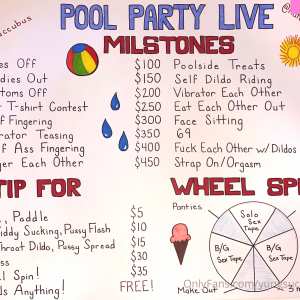 POOL PARTY LIVE
MILSTONES
es Off $100 Poolside Treats
dies Out $150 Self Dildo Riding
toms Off $200 Vibrator Each Other
T-shirt Contest $250 Eat Each Other Out
f Fingering $300 Face Sitting
rator Teasing $350 69
f Ass Fingering $400 Fuck Each Other w/ Dildos
ger Each Other $450 Strap On/Orgasm
TIP FOR
WHEEL SP
, Paddle $5
iddy Sucking, Pussy Flash $10
hroat Dildo, Pussy Spread $15
ss $30
l Spin! $35
ds Anything! FREE!
Panties
Solo Sex Tape
B/G Sex Tape
B/G Sex Tape
Make Out